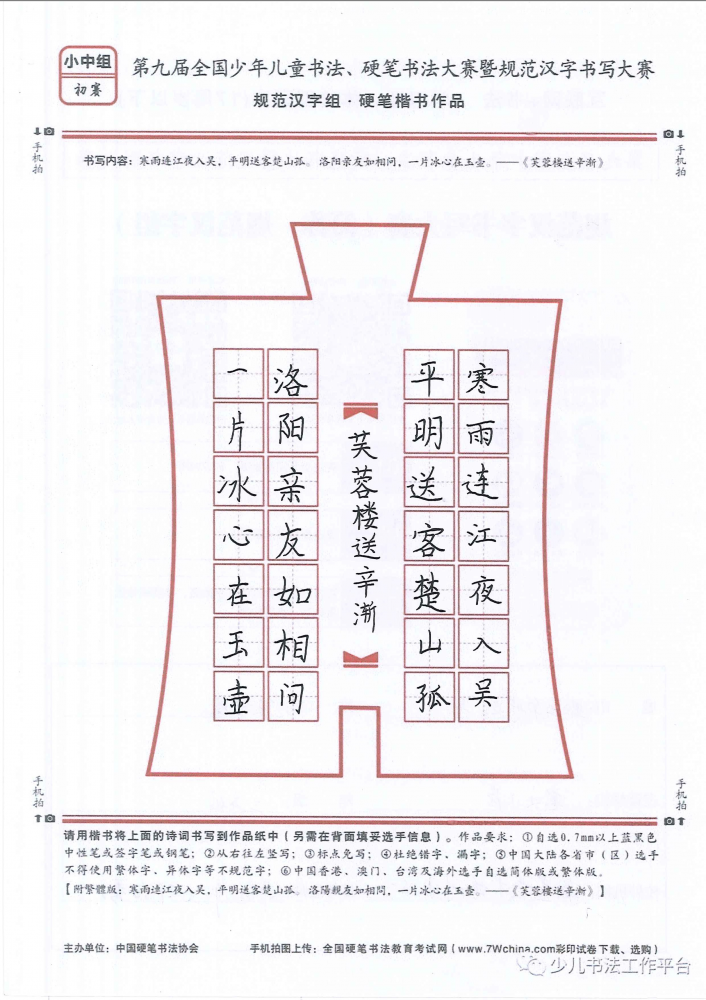 小中组
初赛
第九届全国少年儿童书法、硬笔书法大赛暨规范汉字书写大赛
规范汉字组·硬笔楷书作品
手机拍
手机拍
书写内容：寒雨连江夜入吴，平明送客楚山孤。洛阳亲友如相问，一片冰心在玉壶。——《芙蓉楼送辛渐》
寒雨连江夜入吴
平明送客楚山孤
芙蓉楼送辛渐
洛阳亲友如相问
一片冰心在玉壶
手机拍
手机拍
请用楷书将上面的诗词书写到作品纸中（另需在背面填妥选手信息）。作品要求：①自选0.7mm以上蓝黑色
中性笔或签字笔或钢笔；②从右往左竖写；③标点免写；④杜绝错字、漏字；⑤中国大陆各省市（区）选手
不得使用繁体字、异体字等不规范字；⑥中国香港、澳门、台湾及海外选手自选简体版或繁体版。
【附繁體版：寒雨連江夜入吴，平明送客楚山孤。洛陽親友如相問，一片冰心在玉壺。——《芙蓉樓送辛漸》】
主办单位：中国硬笔书法协会
手机拍图上传：全国硬笔书法教育考试网（www.7Wchina.com彩印试卷下载、选购）
少儿书法工作平台